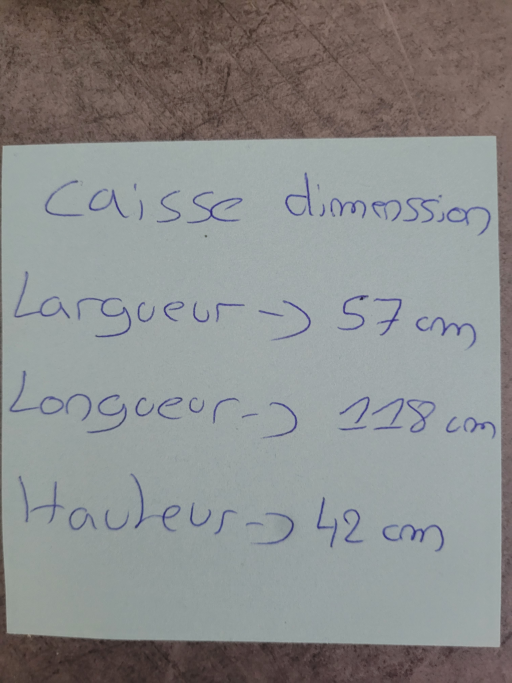 Caisse dimenssion
Largueur -> 57 cm
Longueur -> 118 cm
Hauteur -> 42 cm